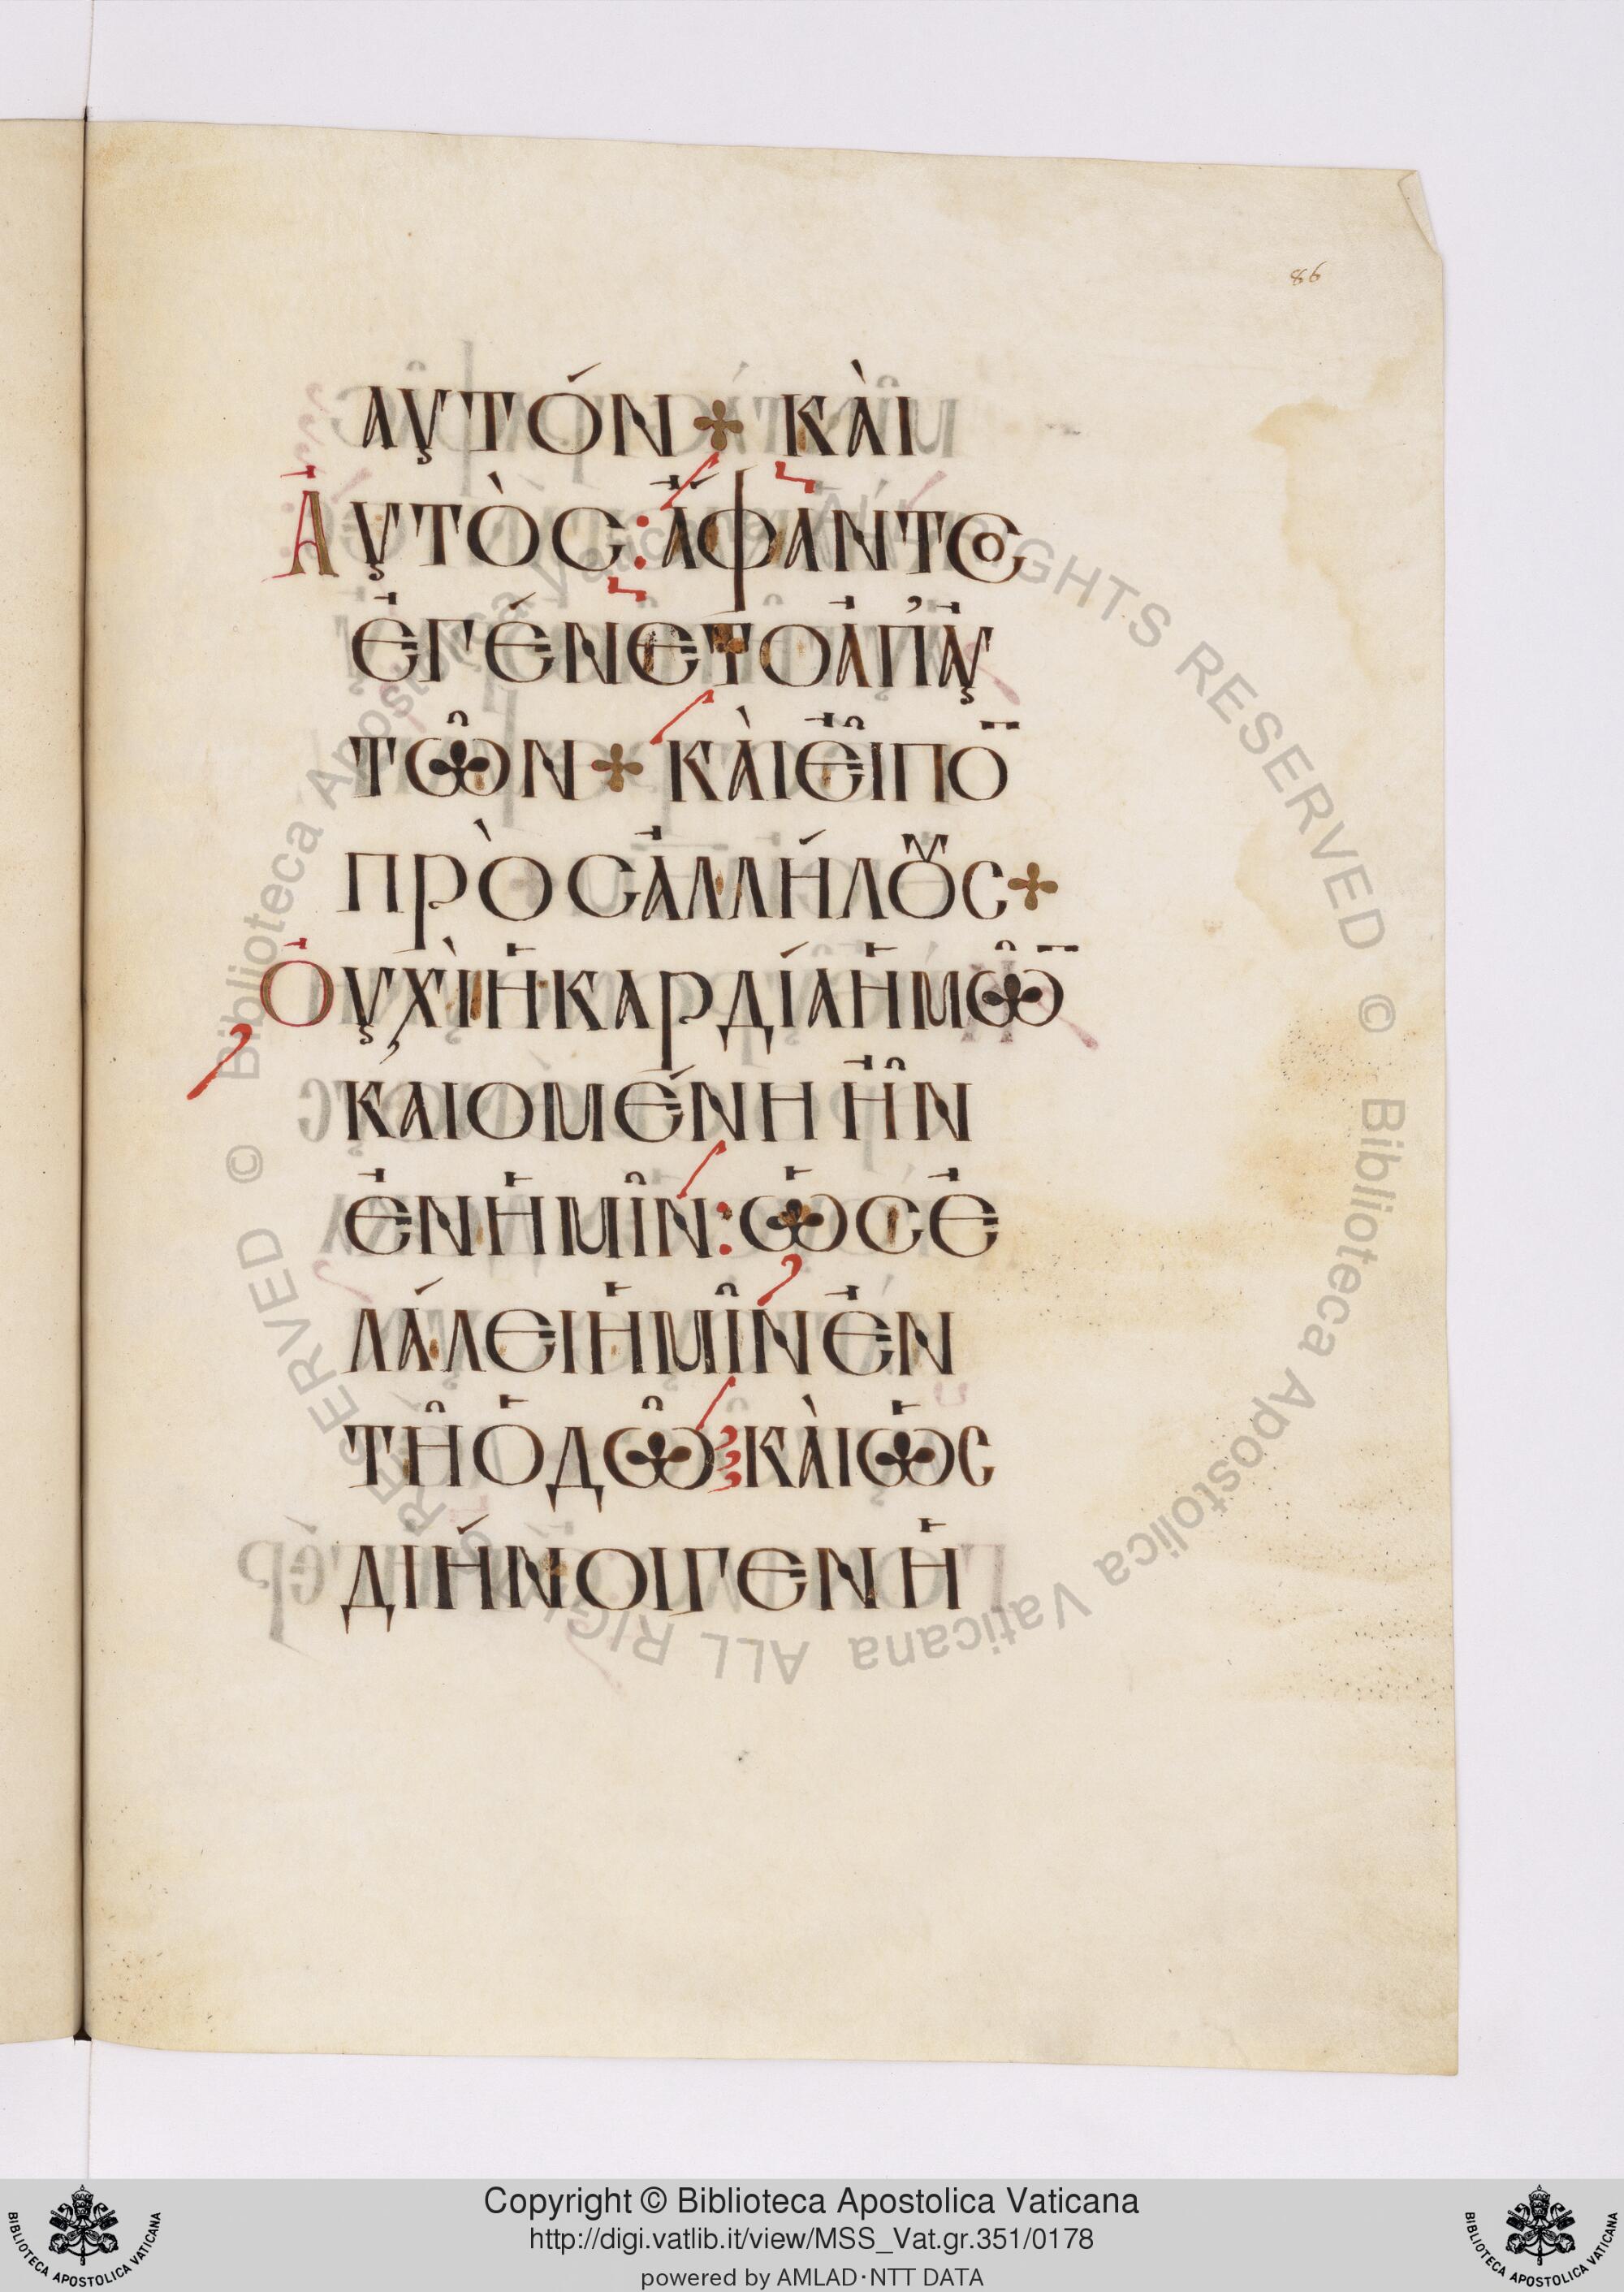 86
ΑΥΤΌΝ + ΚΑῚ
ἈΥΤῸC : ἌΦΑΝΤΟC
ἘΓΈΝΕΤΟ ἈΠ᾽ ἈΥ
ΤΩ͂Ν + ΚΑῚ ΕἾΠΟ̄
ΠΡῸC ἈΛΛΉΛȢC +
ὈΥΧῚ Ἡ ΚΑΡΔΊΑ ἩΜΩ͂̄
ΚΑΙΟΜΈΝΗ ἮΝ
ἘΝ ἩΜΙ͂Ν : ὩC Ἐ
ΛΆΛΕΙ ἩΜΙ͂Ν ἘΝ
ΤΗ͂ ὉΔΩ͂ ΚΑῚ ὩC
ΔΙΉΝΟΙΓΕΝ Ἡ
© Biblioteca Apostolica Vaticana ALL RIGHTS RESERVED © Biblioteca Apostolica Vaticana ALL RIGHTS RESERVED
BIBLIOTECA APOSTOLICA VATICANA
Copyright © Biblioteca Apostolica Vaticana
http://digi.vatlib.it/view/MSS_Vat.gr.351/0178
powered by AMLAD·NTT DATA
BIBLIOTECA APOSTOLICA VATICANA